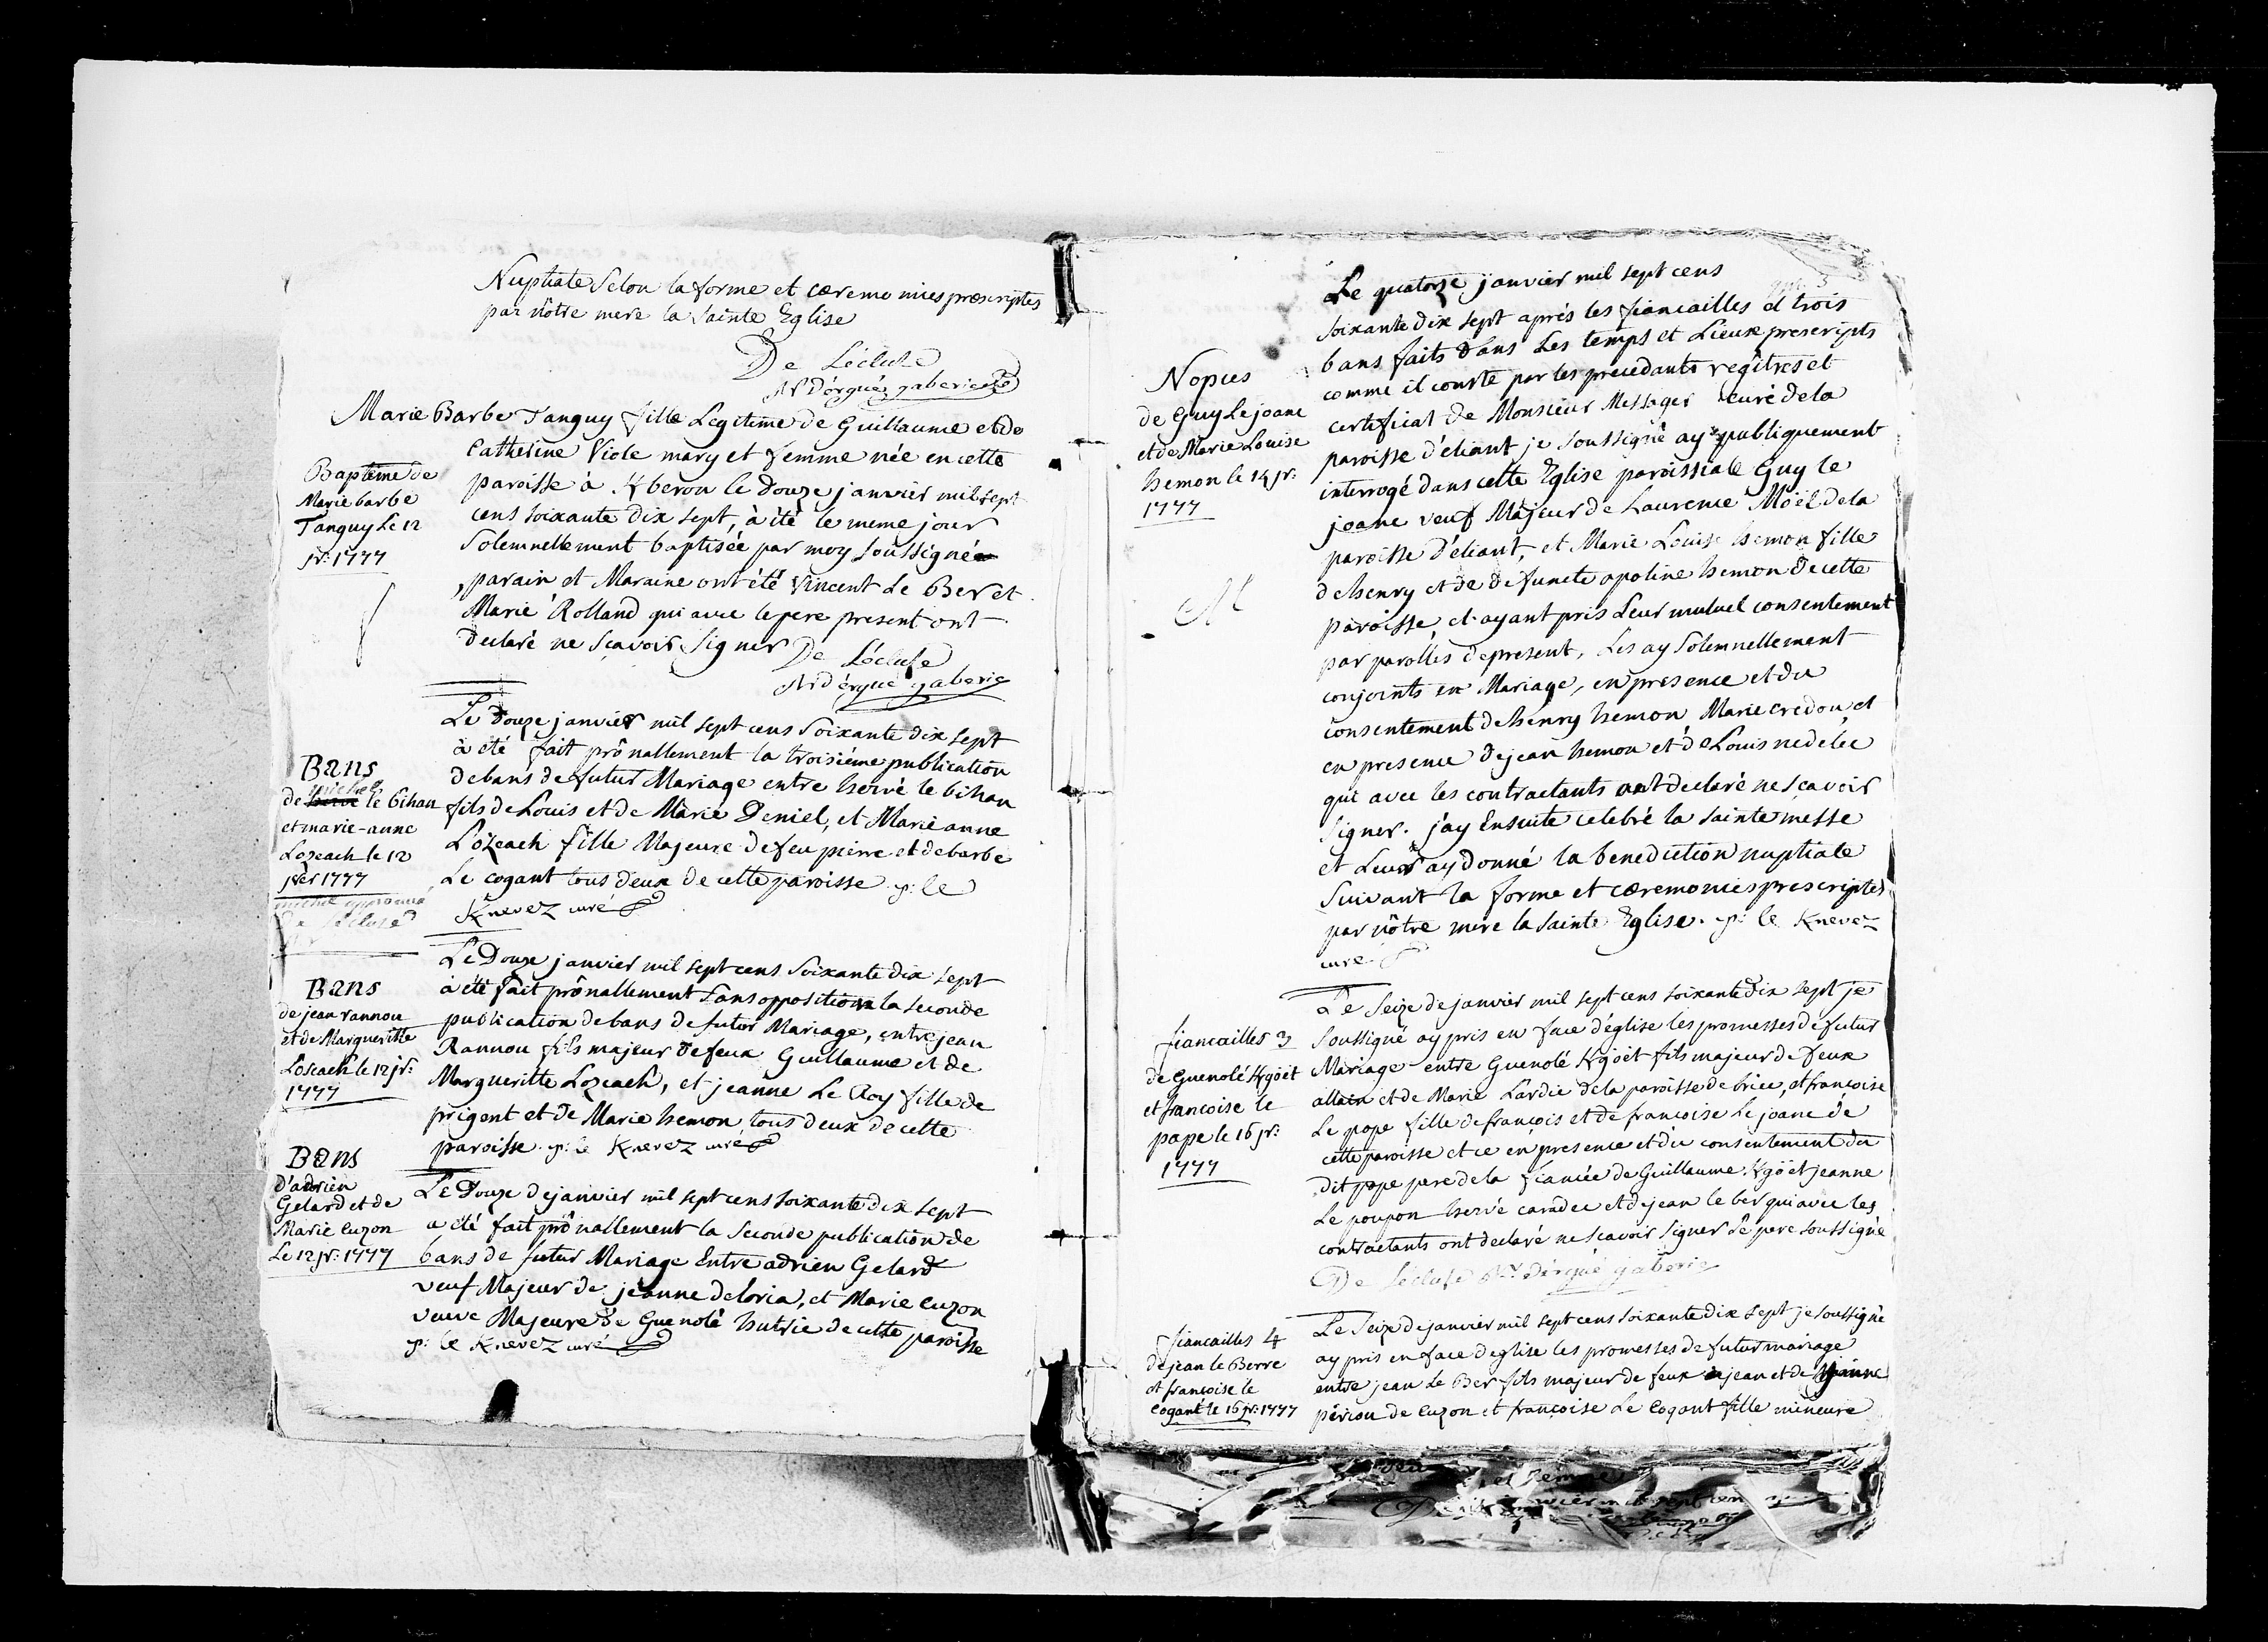 Nuptiale Selon la forme et cæremonies præscriptes
par nôtre mere la Sainte Eglise
De Lécluse
Rr d'érgué gaberic
Marie Barbe Tanguy fille Legitime de Guillaume et de
Catherine Viole mary et femme née en cette
Baptême de
Marie barbe
Tanguy Le 12
jr: 1777
paroisse à Kberon le Douze janvier mil sept
cens soixante dix sept, à été le meme jour
Solemnellement baptisée par moy soussigné
parain et Maraine ont été Vincent Le Ber et
Marie Rolland qui avec le pere present ont
declaré ne sçavoir Signer De Lécluse
Rr d'érgué gaberic
Bans
de michel le bihan
et marie-anne
Lozeach le 12
jvier 1777
michel approuvé
De Lécluse
Le Douze janvier mil sept cens Soixante dix sept
à été fait prônallement la troisiéme publication
de bans de futur Mariage entre hervé le bihan
fils de Louis et de Marie Deniel, et Marie anne
Lozeach fille Majeure de feu pierre et de barbe
Le cogant tous deux de cette paroisse. p: le
Knevez curé
Bans
de jean rannou
et de Margueritte
Loseach le 12 jr:
1777
Le Douze janvier mil sept cens Soixante dix sept
à été fait prônallement sans opposition la seconde
publication de bans de futur Mariage, entre jean
Rannou fils majeur de feux Guillaume et de
Margueritte Lozeach, et jeanne Le Roy fille de
prigent et de Marie hemon tous deux de cette
paroisse. p: le Knevez curé
Bans
D'adrien
Gelard et de
Marie Cuzon
Le 12 jr: 1777
Le Douze de janvier mil sept cens soixante dix sept
a été fait prônallement la seconde publication de
bans de futur Mariage Entre adrien Gelard
veuf Majeur de jeanne deloria, et Marie Cuzon
veuve Majeure de Guenolé hutrie de cette paroisse
p: le Knevez curé
Nopces
de Guy Le joanc
et de Marie Louise
hemon le 14 jr:
1777
Le quatorze janvier mil sept cens
soixante dix sept aprés les fiancailles et trois
bans faits dans Les temps et Lieux prescripts
comme il conste par les precedants regîtres et
certificat de Monsieur Messager curé de la
paroisse d'éliant je soussigné ay publiquement
interrogé dans cette Eglise paroissiale Guy le
joanc veuf Majeur de Laurence Moël de la
paroisse d'éliant, et Marie Louise hemon fille
de henry et de defuncte apoline hemon de cette
paroisse, et ayant pris Leur mutuel consentement
par parolles de present, Les ay Solemnellement
conjoints en Mariage, en presence et du
consentement de henry hemon Marie credou, et
en presence de jean hemon et de Louis nedelec
qui avec les contractants ont declaré ne sçavoir
signer. j'ay Ensuite celebré la sainte messe
et Leur ay donné la benediction nuptiale
Suivant la forme et cæremonies prescriptes
par nôtre mere la Sainte Eglise. p: le Knevez
curé
fiancailles 3
de Guenolé Kgöet
et francoise le
pape le 16 jr:
1777
Le Seize de janvier mil sept cens soixante dix sept je
Soussigné ay pris en face d'église les promesses de futur
Mariage entre Guenolé Kgöet fils majeur de feux
allain et de Marie Lardic de la paroisse de briec, et francoise
Le pape fille de francois et de francoise Le joanc de
cette paroisse et ce en presence et du consentement du
dit pape pere de la fiancée de Guillaume Kgöet jeanne
Le poupon hervé caradec et de jean le ber qui avec les
contractants ont declaré ne scavoir signer Le pere soussigné
De Lécluse Rr d'érgué gaberic
fiancailles 4
de jean le Berre
et francoise le
Cogant le 16 jr: 1777
Le Seize de janvier mil sept cens soixante dix sept je soussigné
ay pris en face deglise les promesses de futur mariage
entre jean Le Ber fils majeur de feux jean et de jeanne
périou de Cuzon et françoise Le Cogant fille mineure